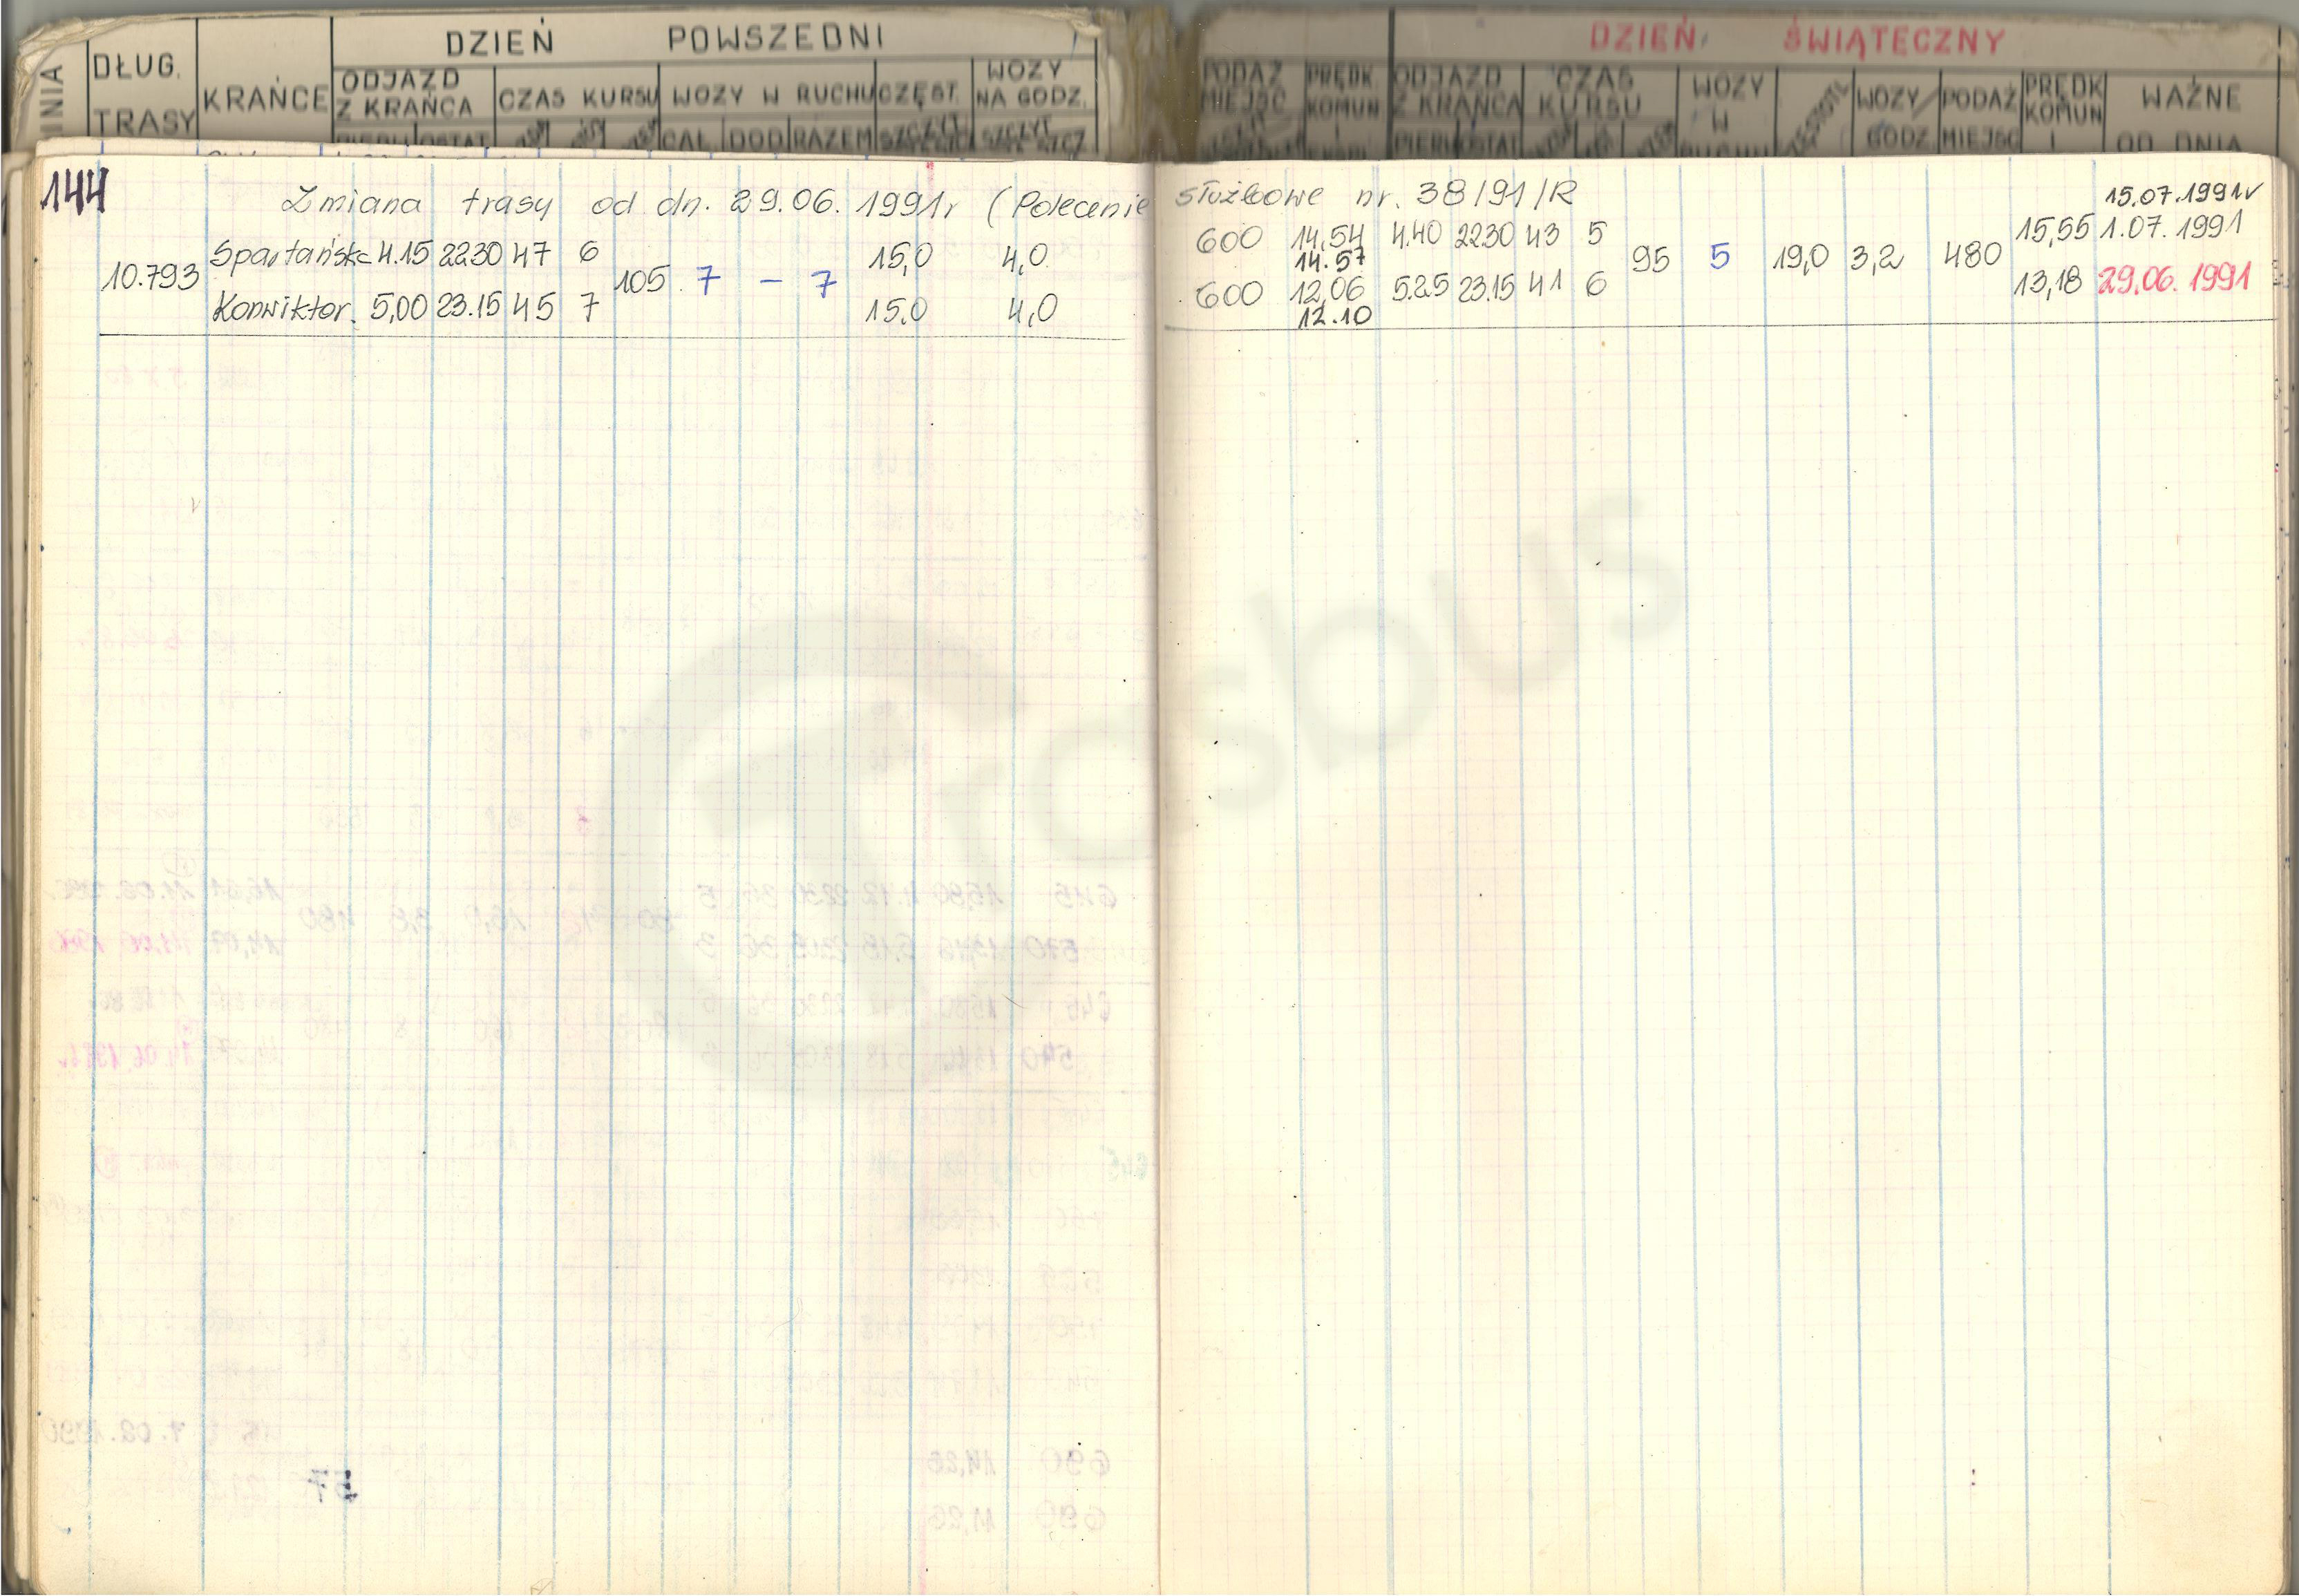 DZIEŃ POWSZEDNI DZIEŃ ŚWIĄTECZNY
DŁUG. TRASY KRAŃCE ODJAZD Z KRAŃCA CZAS KURSU WOZY W RUCHU CZĘST. WOZY NA GODZ. PODAŻ MIEJSC PRĘDK KOMUN I ODJAZD Z KRAŃCA CZAS KURSU WOZY W WOZY/GODZ PODAŻ MIEJSC PRĘDK KOMUN I WAŻNE OD DNIA
CAŁ DOD RAZEM
144 Zmiana trasy od dn. 29.06. 1991r (Polecenie służbowe nr. 38/91/R 15.07.1991r
Spartańska 4.15 2230 47 6 15,0 4,0 600 14,54 4.40 2230 43 5 15,55 1.07. 1991
14.57
10.793 105 7 – 7 95 5 19,0 3,2 480
Konwiktor. 5,00 23.15 45 7 15,0 4,0 600 12,06 5.25 23.15 41 6 13,18 29.06. 1991
12.10
Trasbus